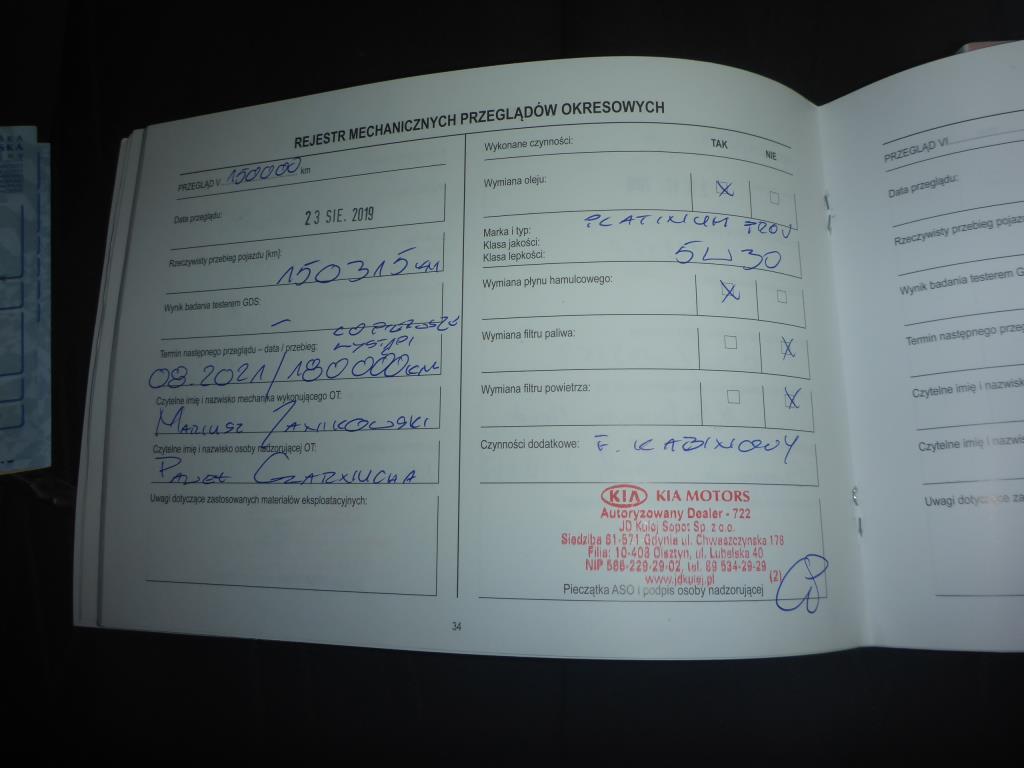 REJESTR MECHANICZNYCH PRZEGLĄDÓW OKRESOWYCH
PRZEGLĄD V 150000 km
Data przeglądu: 23 SIE. 2019
Rzeczywisty przebieg pojazdu [km]:
150315 km
Wynik badania testerem GDS:
–
CO PIERWSZE
WYSTĄPI
Termin następnego przeglądu – data / przebieg:
08.2021/180000km
Czytelne imię i nazwisko mechanika wykonującego OT:
MARIUSZ JANIKOWSKI
Czytelne imię i nazwisko osoby nadzorującej OT:
PAWEŁ
Uwagi dotyczące zastosowanych materiałów eksploatacyjnych:
Wykonane czynności: TAK NIE
Wymiana oleju: X
Marka i typ: PLATINIUM
Klasa jakości:
Klasa lepkości: 5W30
Wymiana płynu hamulcowego: X
Wymiana filtru paliwa: X
Wymiana filtru powietrza: X
Czynności dodatkowe: F. KABINOWY
KIA KIA MOTORS
Autoryzowany Dealer - 722
JD Kulej Sopot Sp. z o.o.
Siedziba 81-571 Gdynia ul. Chwaszczyńska 178
Filia: 10-408 Olsztyn, ul. Lubelska 40
NIP 586-229-29-02, tel. 89 534-29-29
www.jdkulej.pl (2)
Pieczątka ASO i podpis osoby nadzorującej
34
PRZEGLĄD VI
Data przeglądu:
Rzeczywisty przebieg
Wynik badania testerem
Termin następnego
Czytelne imię i nazwisko
Czytelne imię i
Uwagi